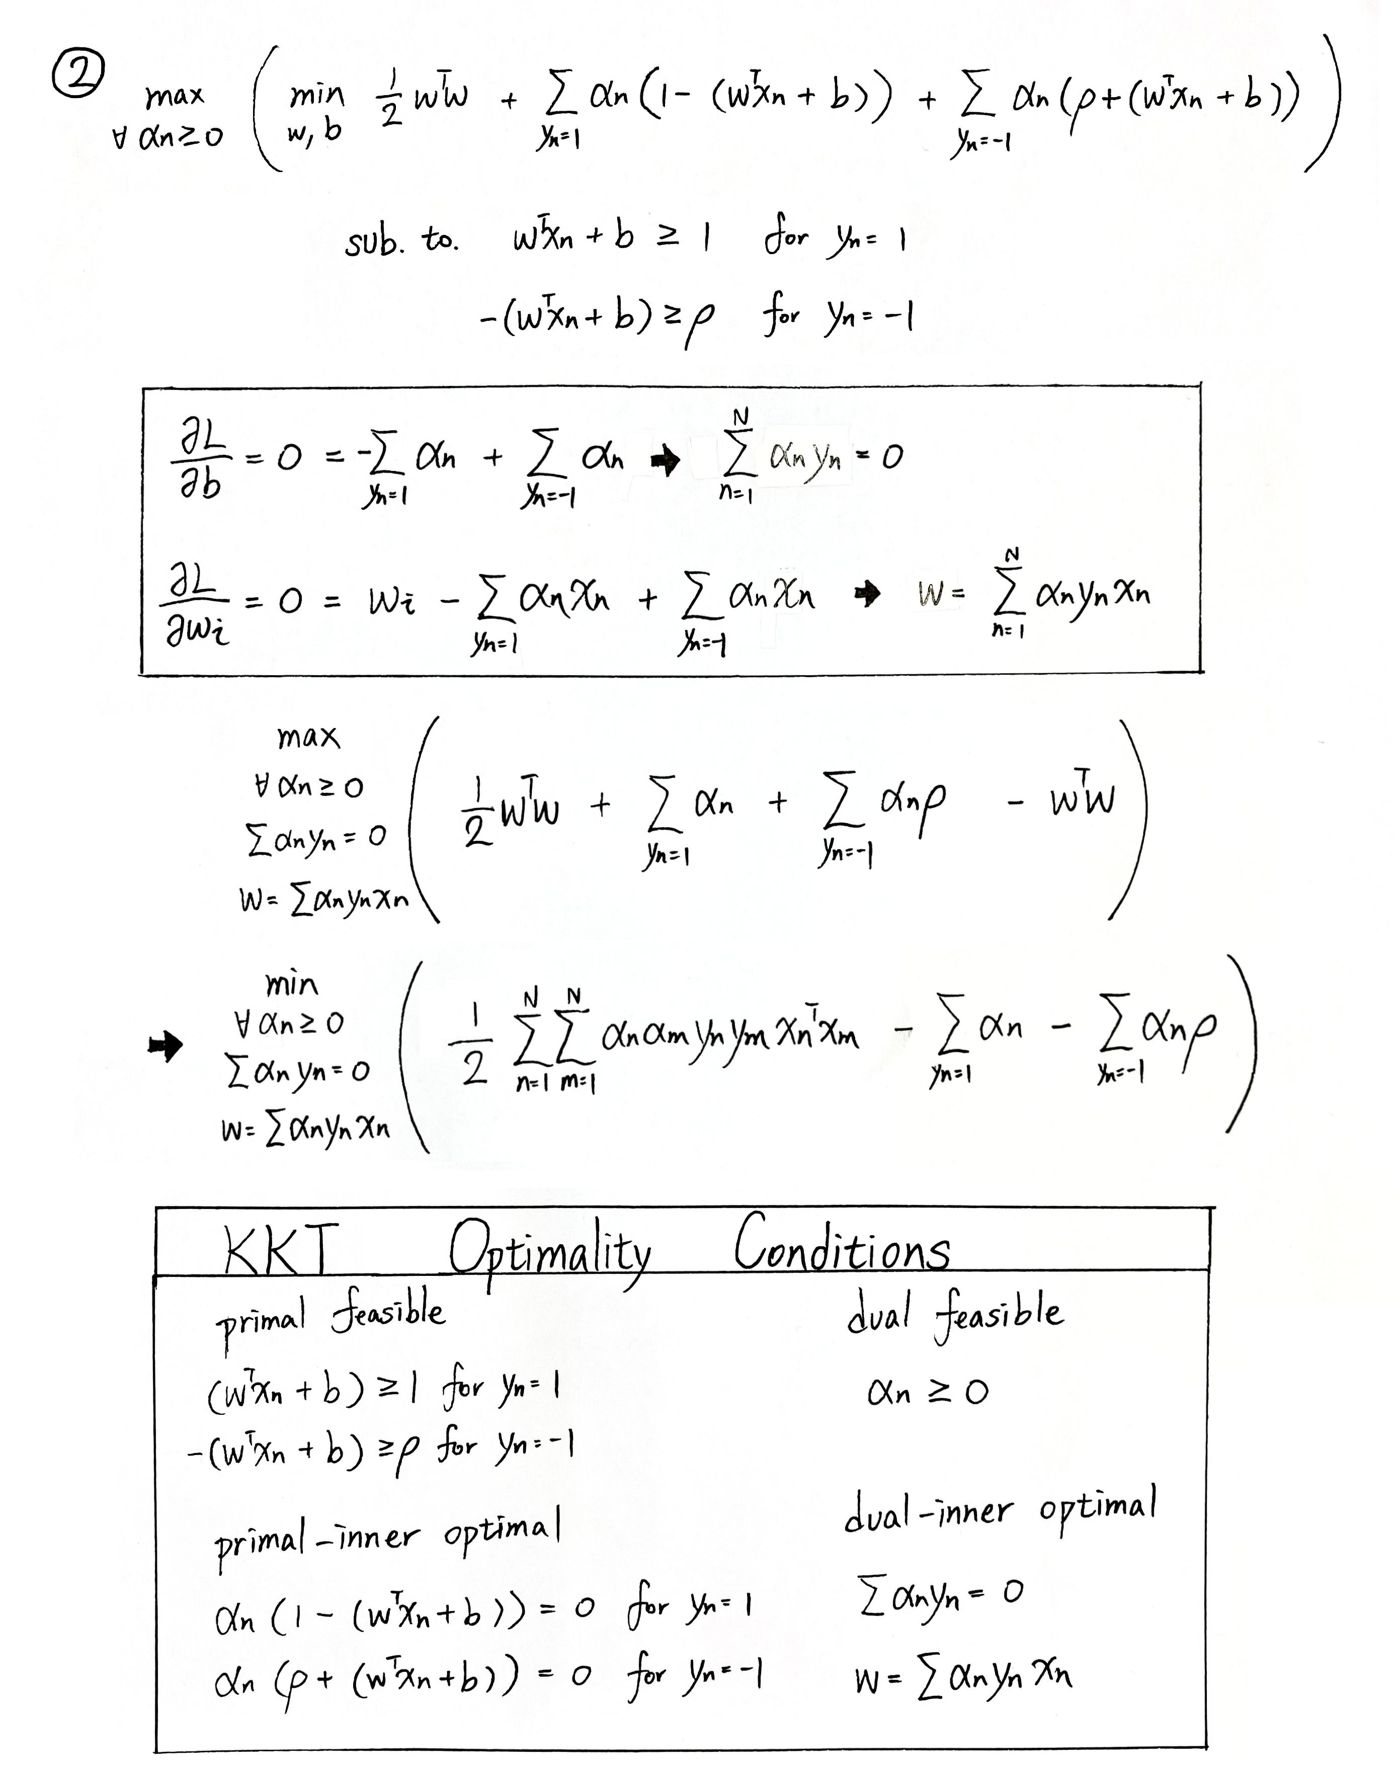 ② max ∀ αn ≥ 0 ( min w, b 1/2 wᵀw + ∑ yn=1 αn (1 - (wᵀxn + b)) + ∑ yn=-1 αn (ρ + (wᵀxn + b)) )
sub. to. wᵀxn + b ≥ 1 for yn = 1
-(wᵀxn + b) ≥ ρ for yn = -1
∂L/∂b = 0 = -∑ yn=1 αn + ∑ yn=-1 αn ➡ ∑ n=1 N αn yn = 0
∂L/∂wi = 0 = wi - ∑ yn=1 αn xn + ∑ yn=-1 αn xn ➡ w = ∑ n=1 N αn yn xn
max ∀ αn ≥ 0 ∑ αn yn = 0 w = ∑ αn yn xn ( 1/2 wᵀw + ∑ yn=1 αn + ∑ yn=-1 αn ρ - wᵀw )
➡ min ∀ αn ≥ 0 ∑ αn yn = 0 w = ∑ αn yn xn ( 1/2 ∑ n=1 N ∑ m=1 N αn αm yn ym xnᵀ xm - ∑ yn=1 αn - ∑ yn=-1 αn ρ )
KKT Optimality Conditions
primal feasible
(wᵀxn + b) ≥ 1 for yn = 1
-(wᵀxn + b) ≥ ρ for yn = -1
dual feasible
αn ≥ 0
primal-inner optimal
αn (1 - (wᵀxn + b)) = 0 for yn = 1
αn (ρ + (wᵀxn + b)) = 0 for yn = -1
dual-inner optimal
∑ αn yn = 0
w = ∑ αn yn xn